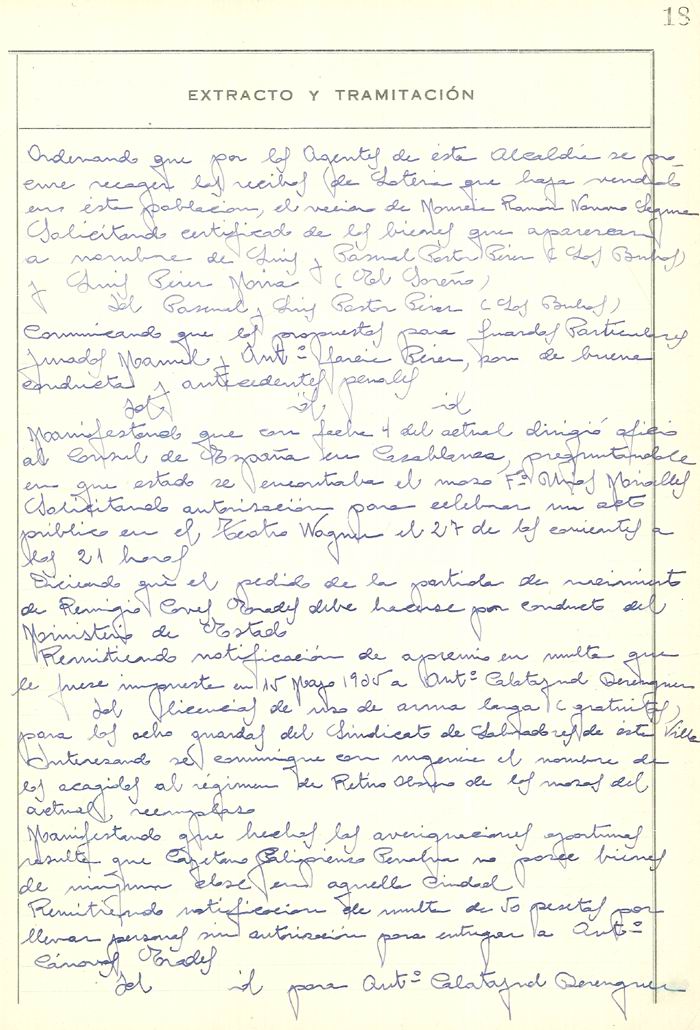 18
EXTRACTO Y TRAMITACIÓN
Ordenando que por los Agentes de ésta Alcaldía se pro
cure recoger los recibos de Loteria que haya vendido
en ésta poblacion, el vecino de Ramón Navarro Segura
Solicitando certificado de los bienes que aparezcan
a nombre de Luis y Pascual Pastor Pérez (Los Buhos)
y Luis Pérez Moria (El Soreño)
Id Pascual y Luis Pastor Pérez (Los Buhos)
Comunicando que los propuestos para Guardas Particulares
Jurados Manuel y Antº Pérez, son de buena
conducta y antecedentes penales
Id id id
Manifestando que con fecha 4 del actual dirigió oficio
al Consul de España en Casablanca, preguntandole
en que estado se encontraba el mozo Fº
Solicitando autorización para celebrar un acto
público en el Teatro Wagner el 27 de los corrientes a
las 21 horas
Diciendo que el pedido de la partida de nacimiento
de Remigio Coves debe hacerse por conducto del
Ministerio de Estado
Remitiendo notificación de apremio en multa que
le fuese impuesta en 15 Mayo 1935 a Antº Calatayud Berenguer
Id licencias de uso de arma larga (gratuitas)
para los ocho guardas del Sindicato de Labradores de ésta Villa
Interesando se comunique con urgencia el nombre de
los acogidos al régimen de Retiro Obrero de los mozos del
actual reemplazo
Manifestando que hechas las averiguaciones oportunas
resulta que Cayetano Galiprienso Penalva no posee bienes
de ninguna clase en aquella Ciudad
Remitiendo notificacion de multa de 50 pesetas por
llevar personas sin autorización para entregar a Antº
Cánovas
Id id para Antº Calatayud Berenguer